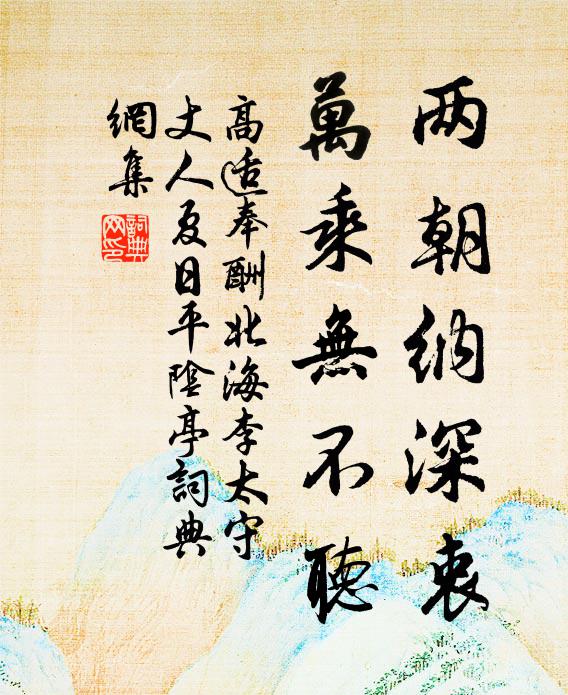 两朝纳深衷
萬乘無不聽
高适奉酬北海李太守
丈人夏日平陰亭詞典
網集
詞典網印